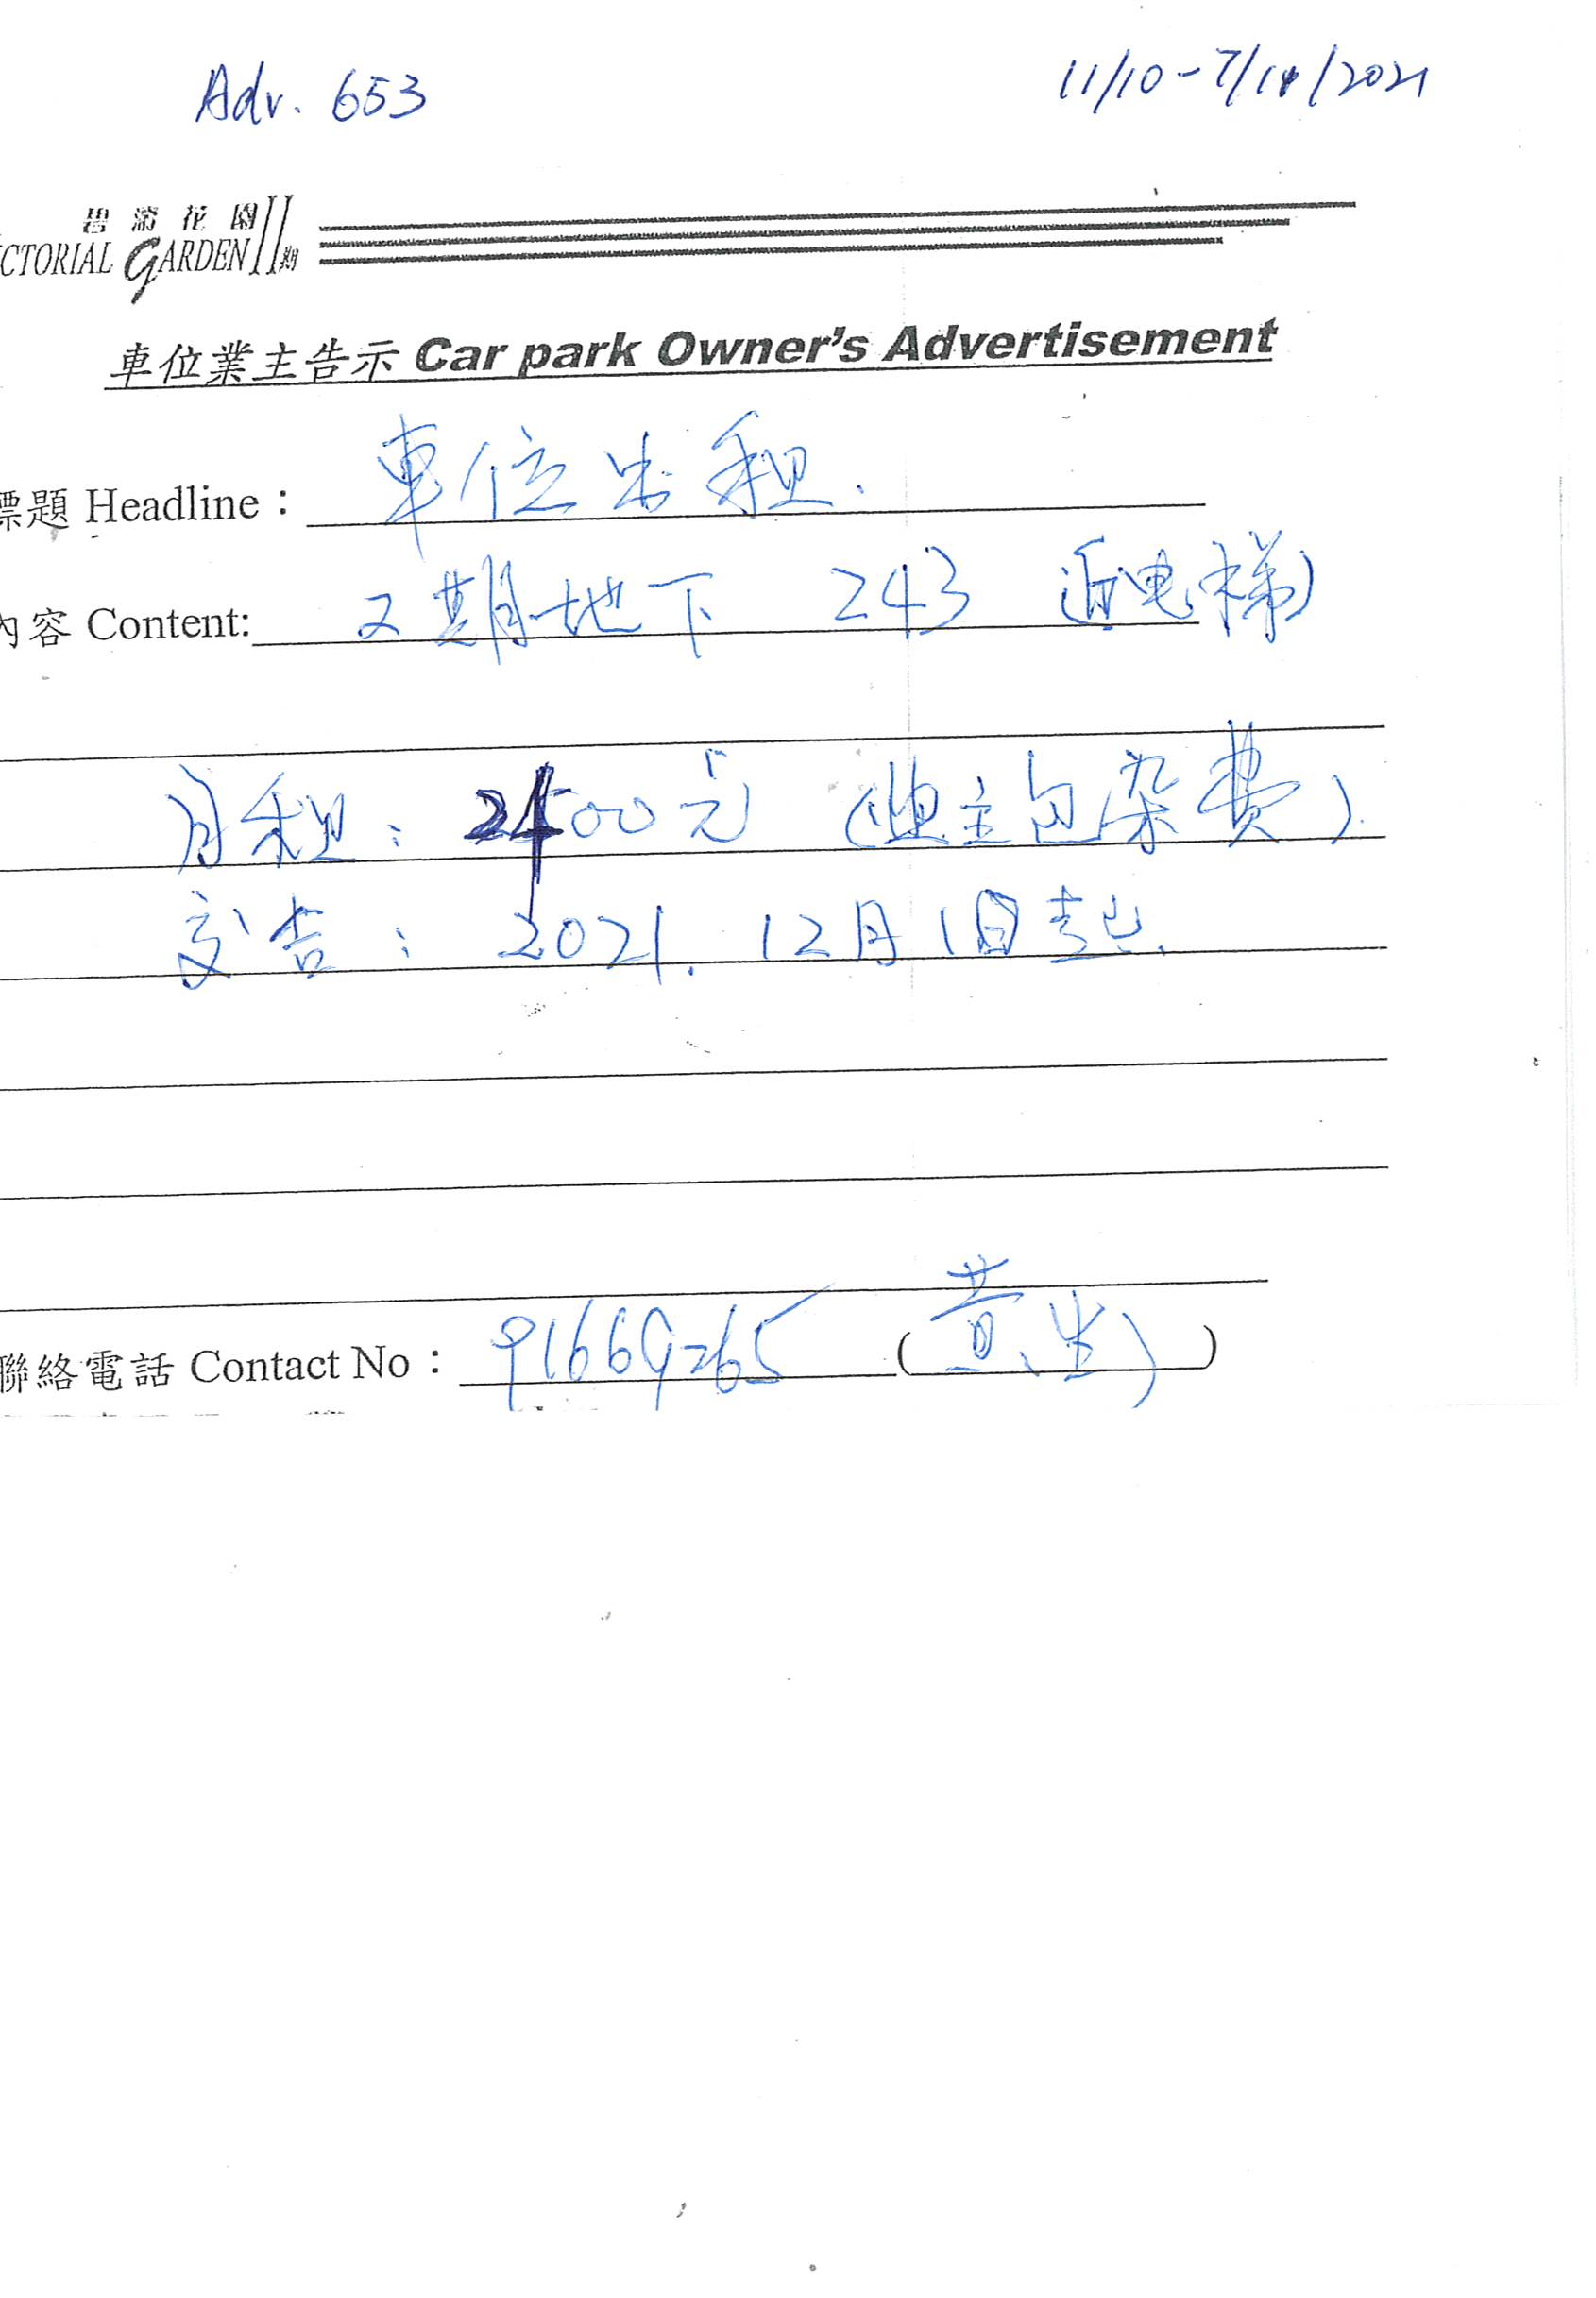 Adv. 653
11/10-7/11/2021
碧濤花園II期
CTORIAL GARDEN
車位業主告示 Car park Owner's Advertisement
標題 Headline： 車位出租.
內容 Content: 2期地下 243 近电梯)
月租： 2400元 (业主包杂费).
交吉： 2021. 12月1日起.
聯絡電話 Contact No： 91669265 (黄生)